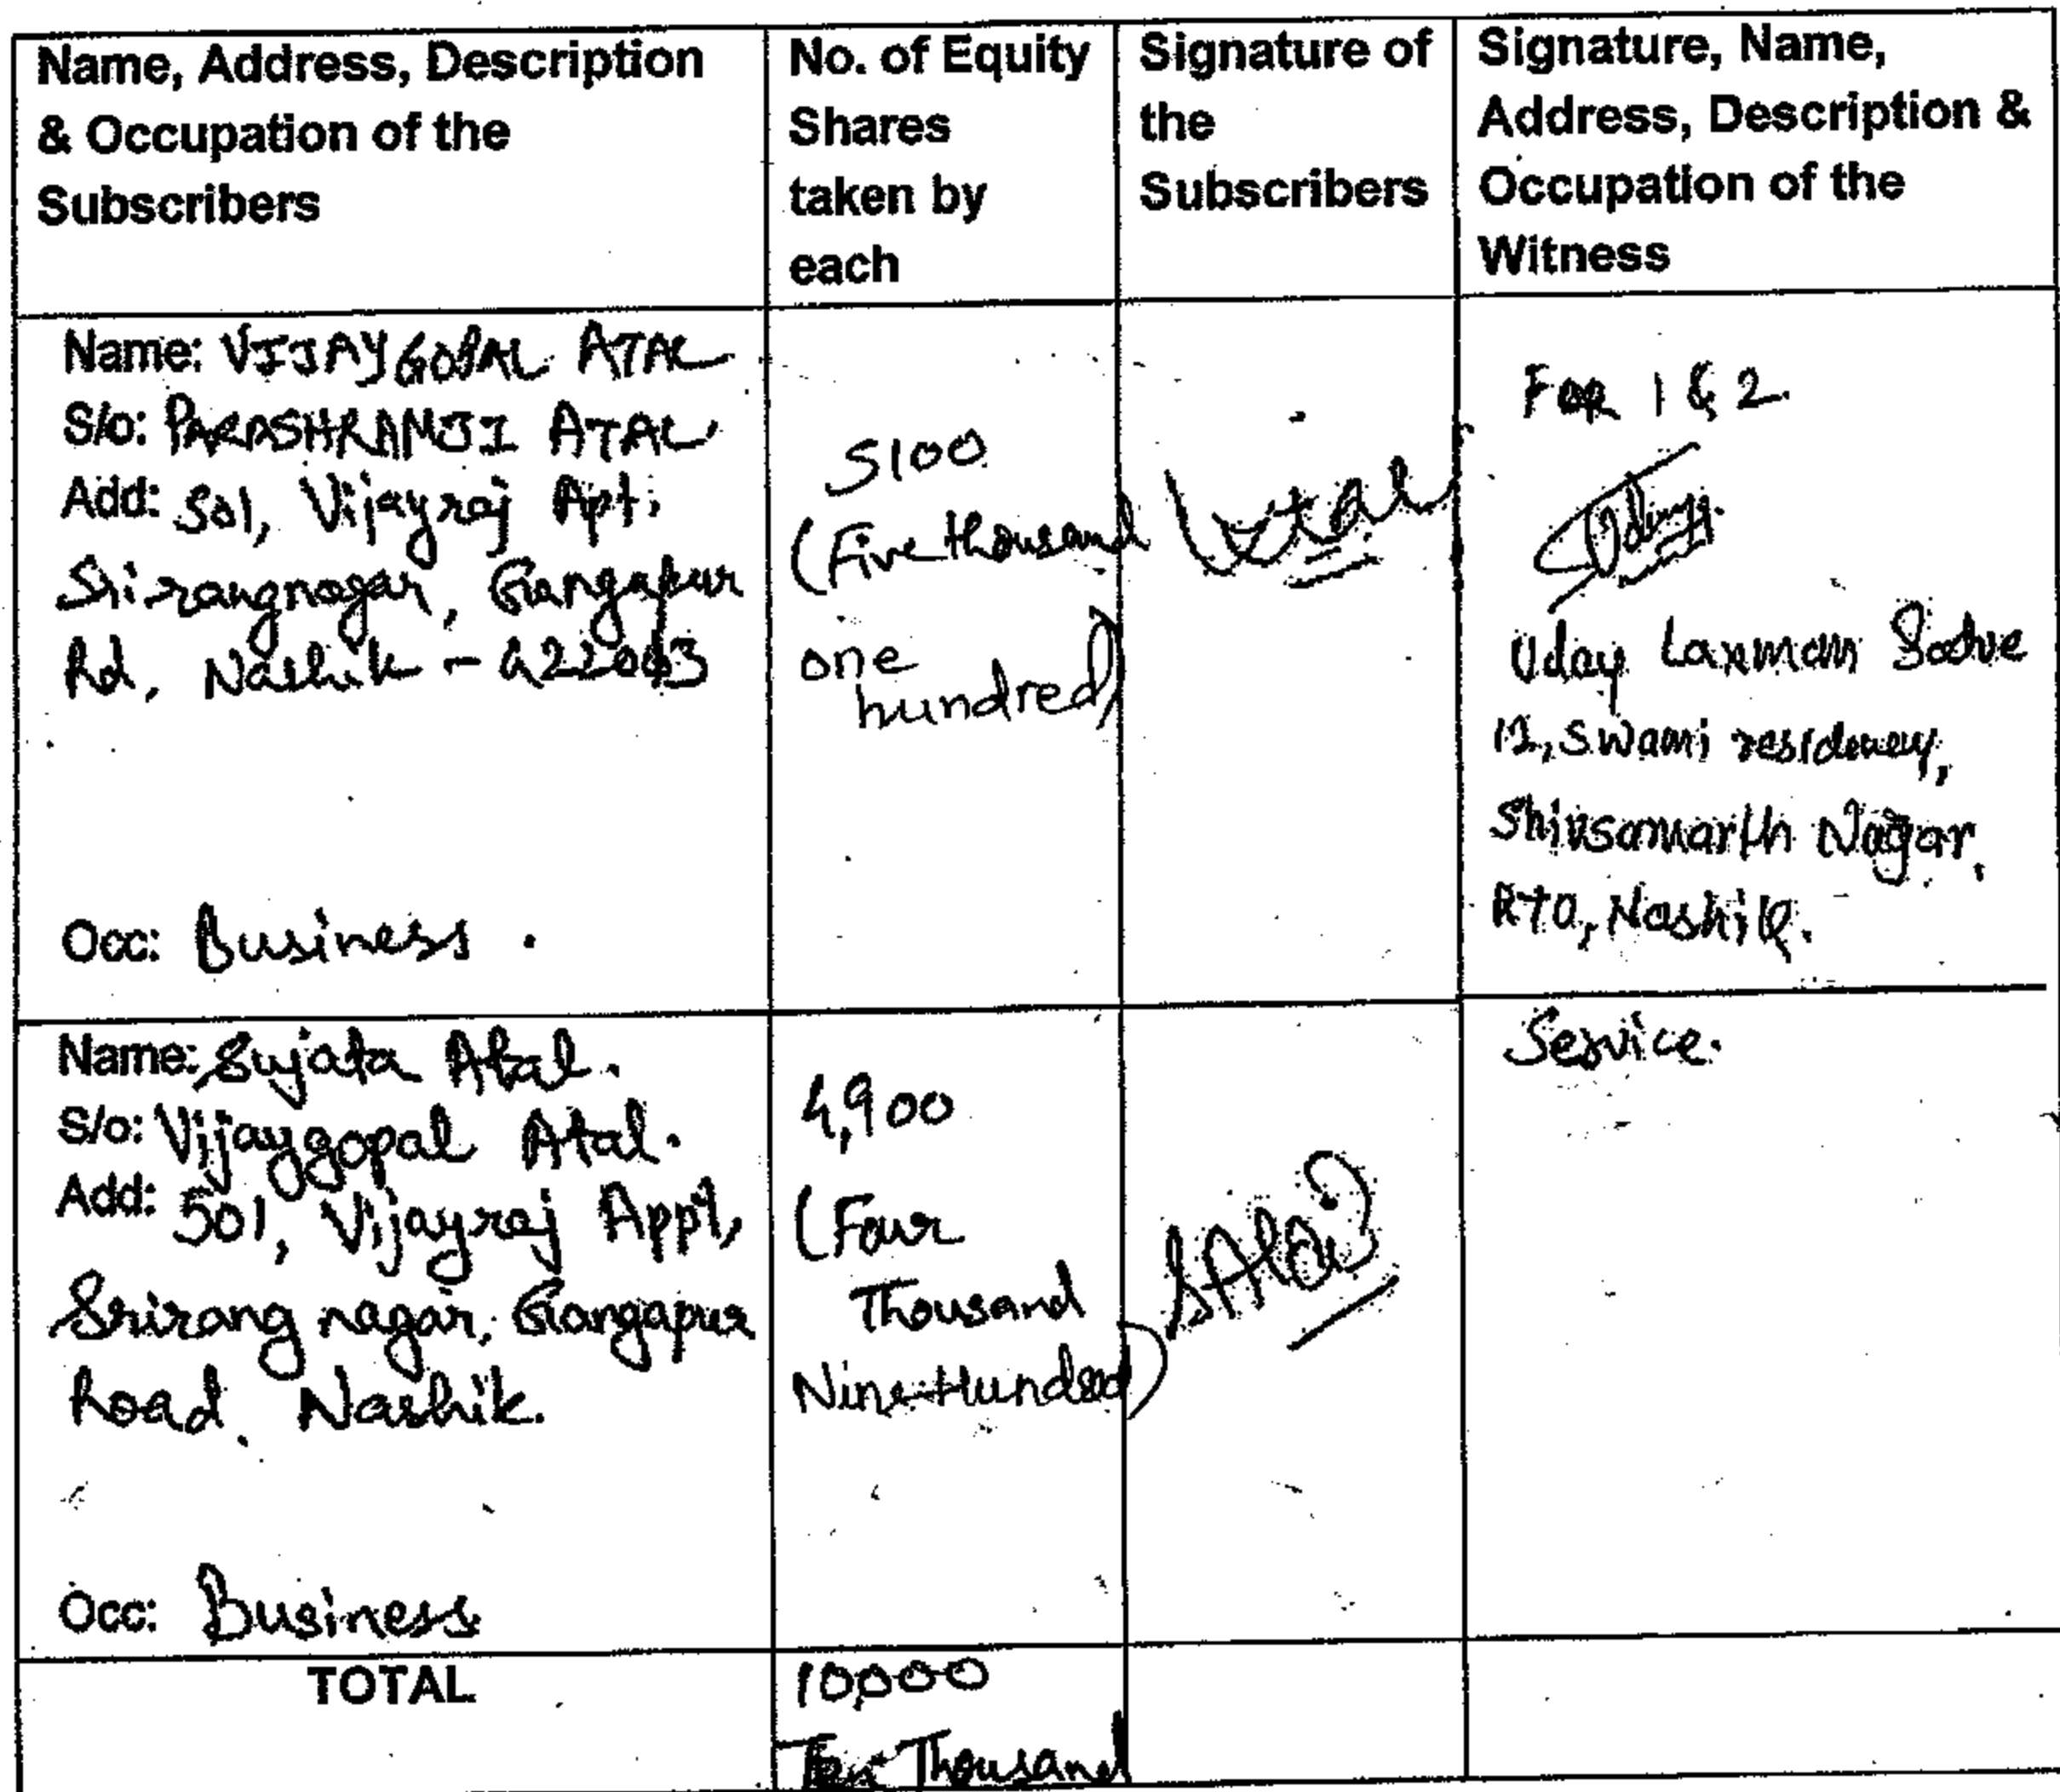 Name, Address, Description
& Occupation of the
Subscribers
No. of Equity
Shares
taken by
each
Signature of
the
Subscribers
Signature, Name,
Address, Description &
Occupation of the
Witness
Name: VIJAYGOPAL ATAL
S/o: PARASHRAMJI ATAL
Add: 501, Vijayraj Apt.
Shrirangnagar, Gangapur
Rd, Nashik - 422003
Occ: Business.
5100
(Five thousand
one
hundred)
FOR 1 & 2.
Uday Laxman
12, Swami residency,
Shivsamarth Nagar,
RTO, Nashik.
Service.
Name: Sujata Atal.
S/o: Vijaygopal Atal.
Add: 501, Vijayraj Appt,
Shrirang nagar, Gangapur
Road, Nashik.
Occ: Business
4,900
(Four
Thousand
Nine Hundred)
SAtal
TOTAL
10,000
Ten Thousand